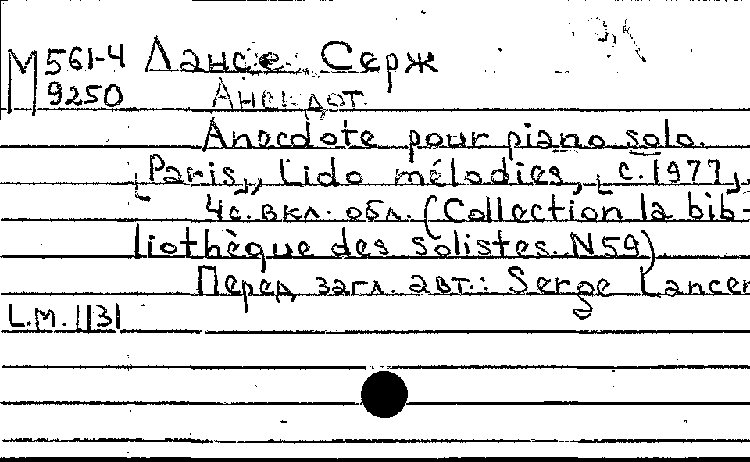 М 561-4 Лансе Серж
9250 Анекдот.
Anecdote pour piano solo.
[Paris], Lido mélodies, [c. 1977].
4с. вкл. обл. (Collection la bib-
liothèque des solistes. N59)
Перед загл. авт.: Serge Lancen
L.M. 1131